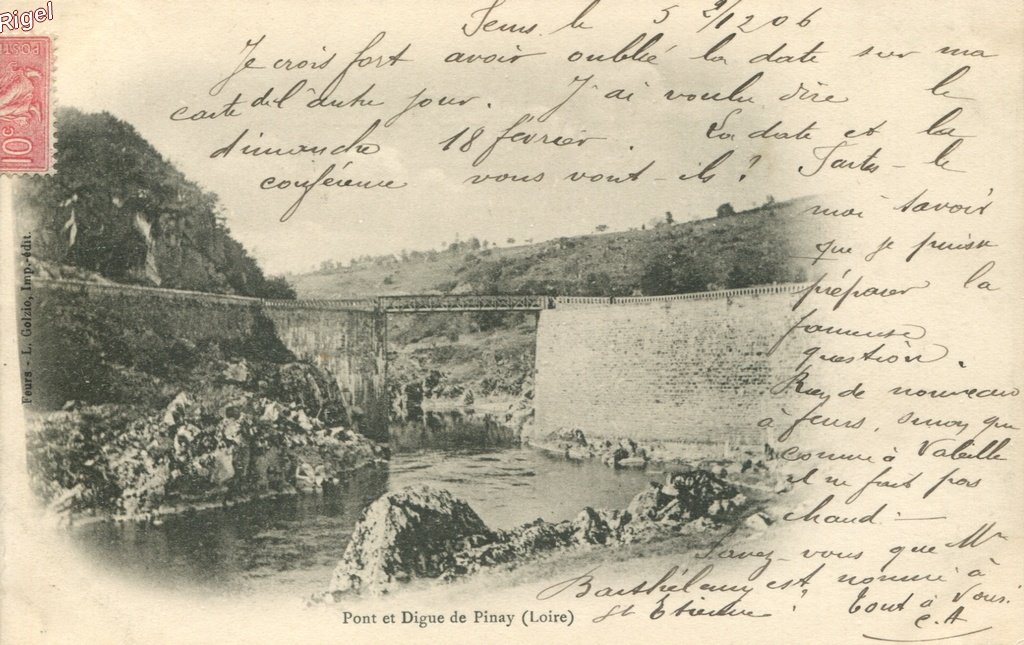 Rigel
POST
10c
Feurs. le 5 2/1206
Je crois fort avoir oublié la date sur ma
carte de l'autre jour. J'ai voulu dire le
dimanche 18 février. La date et la
conférence vous vont-ils? Faites-le
moi savoir
que je puisse
préparer la
fameuse
question.
Rien de nouveau
à feurs, sinon que
comme à Valeille
il ne fait pas
chaud.-
Savez-vous que Mr
Barthélemy est nommé à
St Etienne? Tout à Vous.
C. A
Feurs. - L. Golzio, Imp.-édit.
Pont et Digue de Pinay (Loire)